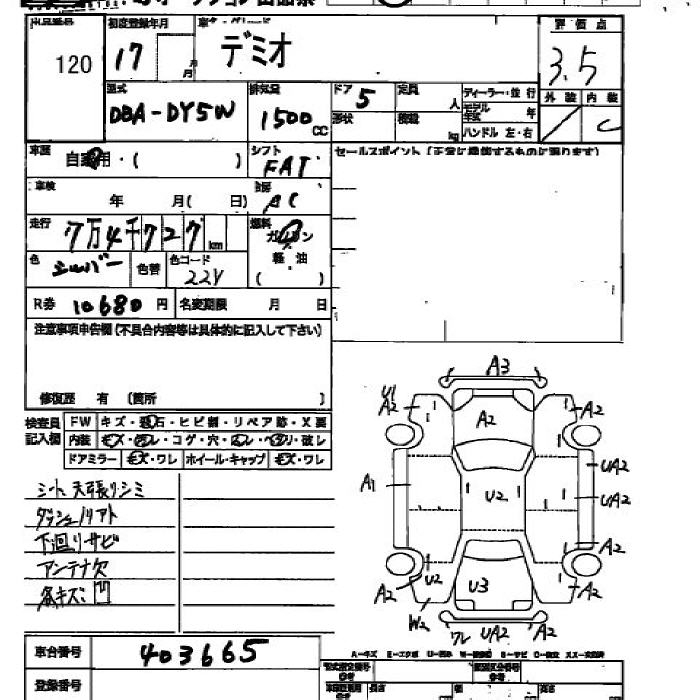 120
初度登録年月
17
月
デミオ
評価点
3.5
型式
DBA-DY5W
排気量
1500
CC
ドア
5
形状
定員
人
積載
kg
ディーラー・並行
モデル年式
年
ハンドル 左・右
外装 内装
C
車歴
自家用・( )
シフト
FAT
セールスポイント
車検
年 月( 日)
AC
走行
7万4千727km
燃料
ガソリン
軽油
( )
色
シルバー
色替
色コード
22V
R券
10680円
名変期限 月 日
注意事項申告欄(不具合内容等は具体的に記入して下さい)
修復歴 有 (箇所 )
検査員記入欄
FW キズ・飛石・ヒビ割・リペア跡・X要
内装 キズ・汚レ・コゲ・穴
ドアミラー キズ・ワレ ホイール・キャップ キズ・ワレ
シート天張りシミ
ダッシュソフト
下回リサビ
アンテナ欠
各キズ凹
A3
U1
A2
A2
A2
A1
U2
UA2
UA2
A2
A2
U2
U3
A2
W2
ワレ UA2 A2
車台番号
403665
登録番号